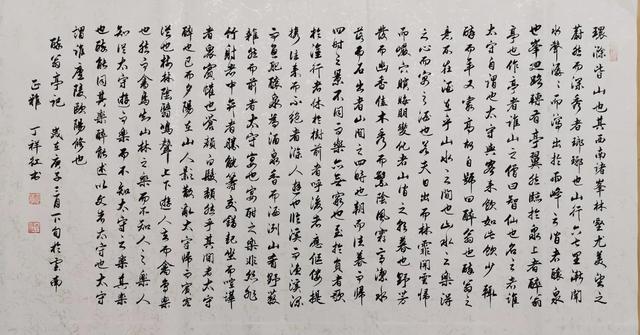 環滁皆山也其西南諸峯林壑尤美望之
蔚然而深秀者瑯琊也山行六七里漸聞
水聲潺潺而瀉出於兩峰之間者釀泉
也峯回路轉有亭翼然臨於泉上者醉翁
亭也作亭者誰山之僧曰智仙也名之者誰
太守自謂也太守與客來飲於此飲少輒
醉而年又最高故自號曰醉翁也醉翁之
意不在酒在乎山水之間也山水之樂得
之心而寓之酒也若夫日出而林霏開雲歸
而巖穴暝晦明變化者山間之朝暮也野芳
發而幽香佳木秀而繁陰風霜高潔水
落而石出者山間之四時也朝而往暮而歸
四時之景不同而樂亦無窮也至於負者歌
於塗行者休於樹前者呼後者應傴僂提
攜往來而不絕者滁人遊也臨溪而漁溪深
而魚肥釀泉為酒泉香而酒洌山肴野蔌
雜然而前者太守宴也宴酣之樂非絲非
竹射者中弈者勝觥籌交錯起坐而諠譁
者眾賓懽也蒼顏白髮頹然乎其間者太守
醉也已而夕陽在山人影散亂太守歸而賓客
從也樹林陰翳鳴聲上下遊人去而禽鳥樂
也然而禽鳥知山林之樂而不知人之樂人
知從太守遊而樂而不知太守之樂其樂
也醉能同其樂醒能述以文者太守也太守
謂誰廬陵歐陽修也
醉翁亭記 歲在庚子三月下旬於雲南
正雅 丁祥紅書